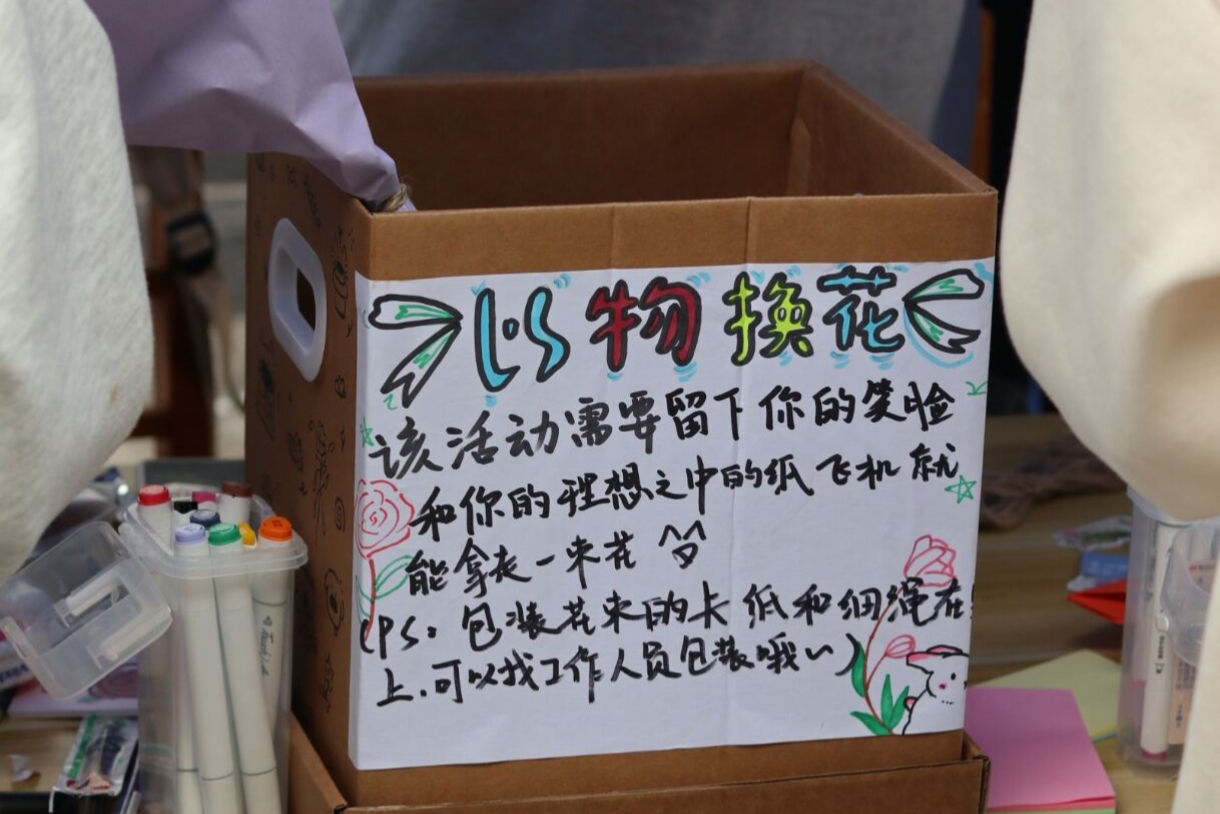 以物换花
该活动需要留下你的笑脸
和你的理想之中的纸飞机就
能拿走一束花
(PS:包装花束的卡纸和细绳在
上.可以找工作人员包装哦~)